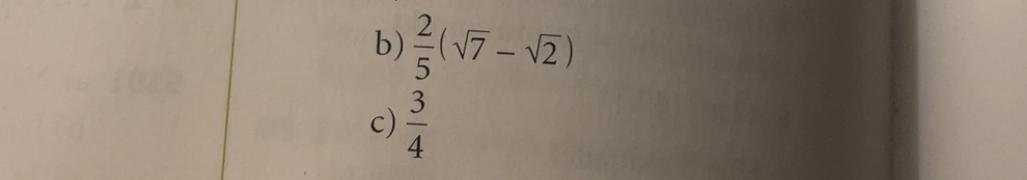 b) 2/5(√7 – √2)
c) 3/4